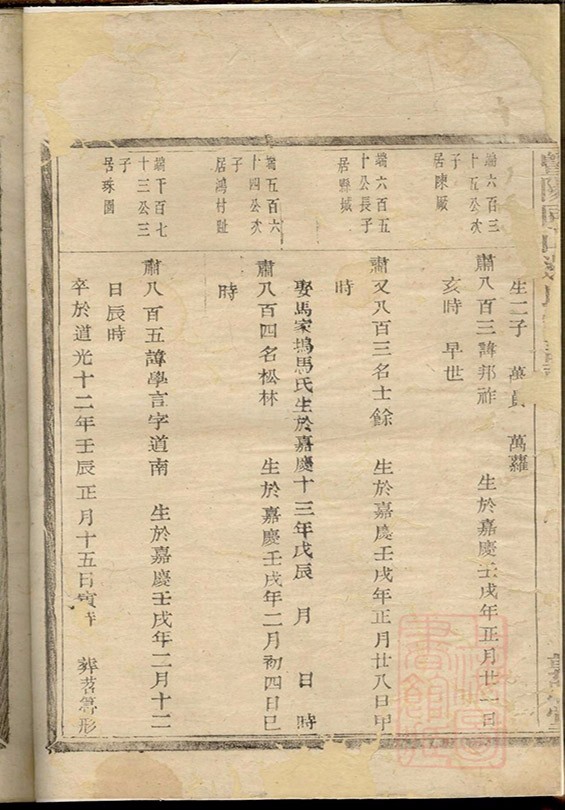 生二子 萬 萬蘿
端六百三
十五公次
子
居陳厰
肅八百三諱邦祚 生於嘉慶壬戌年正月廿一日
亥時 早世
端六百五
十公長子
居縣城
肅又八百三名士餘 生於嘉慶壬戌年正月廿八日甲
時
娶馬家塢馬氏生於嘉慶十三年戊辰 月 日 時
端五百六
十四公次
子
居鴻村趾
肅八百四名松林 生於嘉慶壬戌年二月初四日巳
時
端千百七
十三公三
子
居珠園
肅八百五諱學言字道南 生於嘉慶壬戌年二月十二
日辰時
卒於道光十二年壬辰正月十五日寅時 葬茗篰形